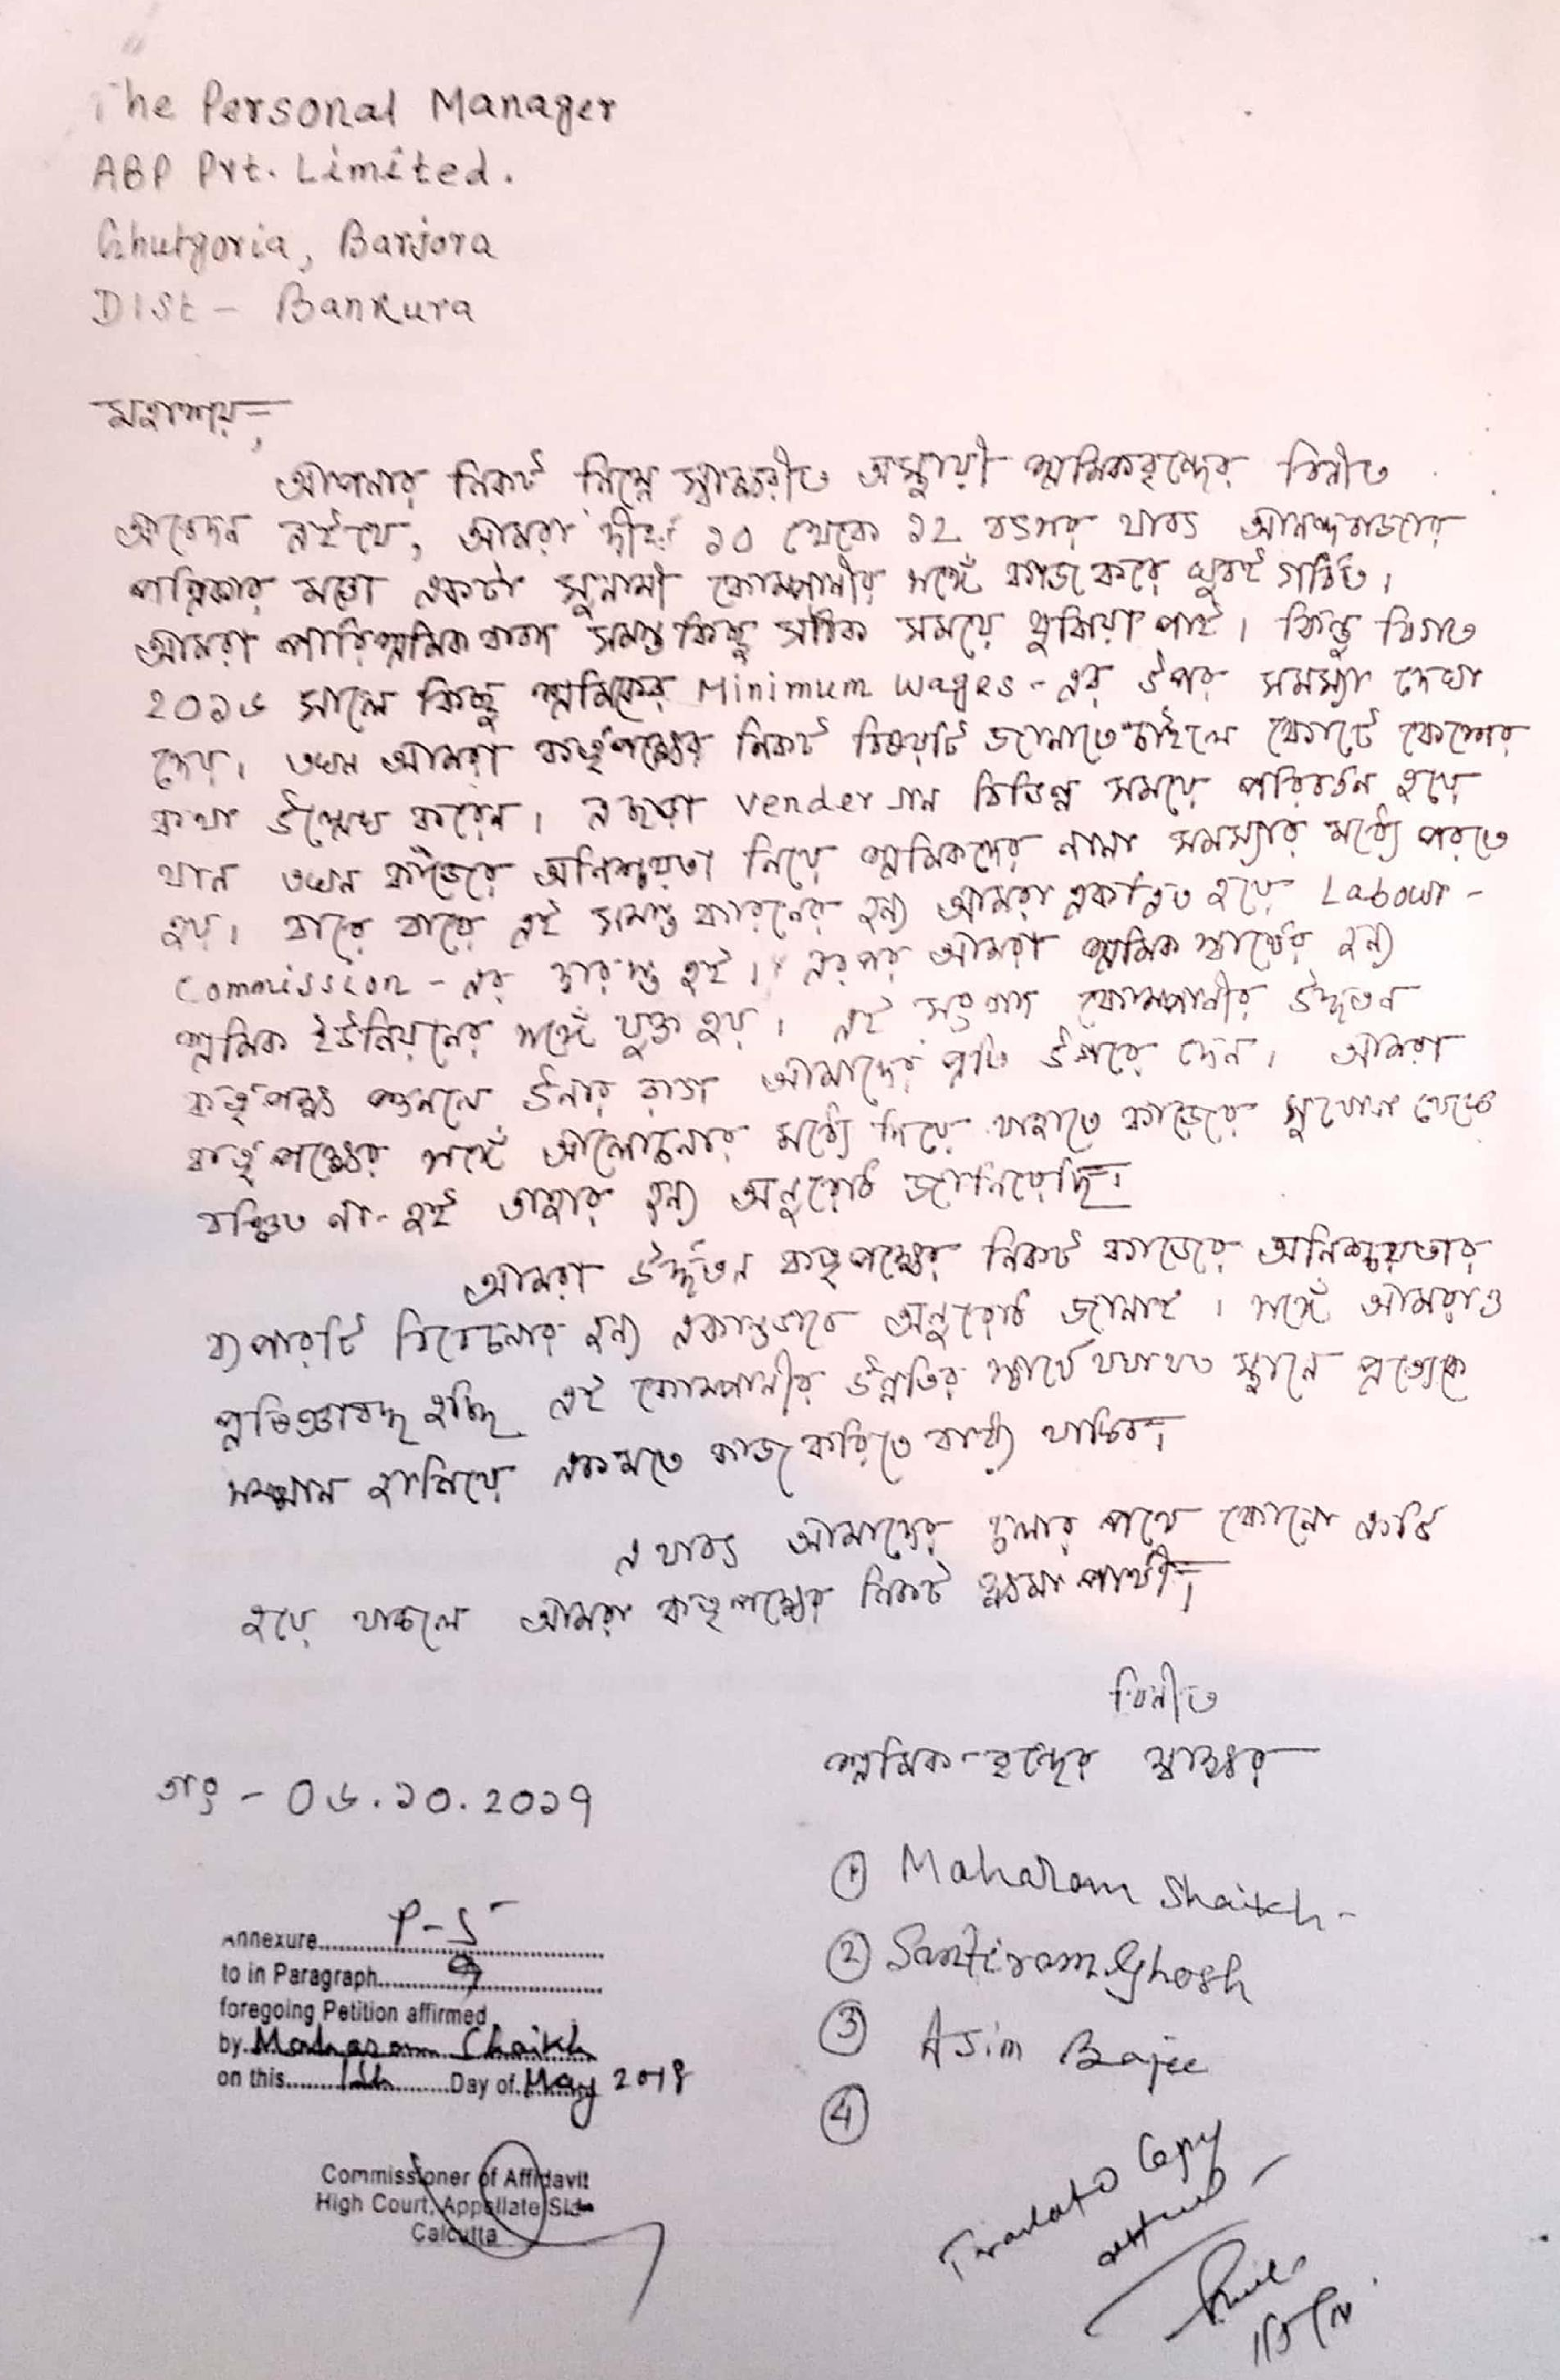 The Personal Manager
ABP Pvt. Limited.
Ghutgoria, Barjora
Dist - Bankura
মহাশয়,
আপনার নিকট নিম্নে স্বাক্ষরীত অস্থায়ী শ্রমিকবৃন্দের বিনীত
আবেদন এইযে, আমরা দীর্ঘ ১০ থেকে ১২ বৎসর যাবৎ আনন্দবাজার
পত্রিকার মতো একটা সুনামী কোম্পানীর সঙ্গে কাজ করে খুবই গর্বিত।
আমরা পারিশ্রমিক বাবদ সমস্ত কিছু সঠিক সময়ে বুঝিয়া পাই। কিন্তু বিগত
২০১৬ সালে কিছু শ্রমিকের Minimum wages - এর উপর সমস্যা দেখা
দেয়। তখন আমরা কর্তৃপক্ষের নিকট বিষয়টি জানাতে চাইলে কোর্টে কেশের
কথা উল্লেখ করেন। এছাড়া vender গন বিভিন্ন সময়ে পরিবর্তন হয়ে
যান তখন কাজের অনিশ্চয়তা নিয়ে শ্রমিকদের নানা সমস্যার মধ্যে পরতে
হয়। বারে বারে এই সমস্ত কারনের জন্য আমরা একত্রিত হয়ে Labour -
Commission - এর দ্বারস্থ হই। এরপর আমরা শ্রমিক স্বার্থের জন্য
শ্রমিক ইউনিয়নের সঙ্গে যুক্ত হয়। এই সংবাদ কোম্পানীর উর্দ্ধতন
কর্তৃপক্ষ শুনলে উনার রাগ আমাদের প্রতি উগরে দেন। আমরা
কর্তৃপক্ষের সঙ্গে আলোচনার মধ্যে দিয়ে যাহাতে কাজের সুযোগ থেকে
বঞ্চিত না-হই তাহার জন্য অনুরোধ জানিয়েছি।
আমরা উর্দ্ধতন কর্তৃপক্ষের নিকট কাজের অনিশ্চয়তার
ব্যপারটি বিবেচনার জন্য একান্তভাবে অনুরোধ জানাই। সঙ্গে আমরাও
প্রতিজ্ঞাবদ্ধ হচ্ছি এই কোম্পানীর উন্নতির স্বার্থে যথাযত স্থানে প্রত্যেকে
সম্মান জানিয়ে একমতে কাজ করিতে বাধ্য থাকিব।
এযাবৎ আমাদের চলার পথে কোনো ত্রুটি
হয়ে থাকলে আমরা কর্তৃপক্ষের নিকট ক্ষমা পার্থী।
বিনীত
শ্রমিক-বৃন্দের স্বাক্ষর
তাং - ০৬.১০.২০১৭
① Maharam Shaikh -
② Santiram Ghosh
③ Asim Bajee
④
Annexure P-5
to in Paragraph 9
foregoing Petition affirmed
by Maharam Shaikh
on this Day of May 2018
Commissioner of Affidavit
High Court, Appellate Side
Calcutta
Copy